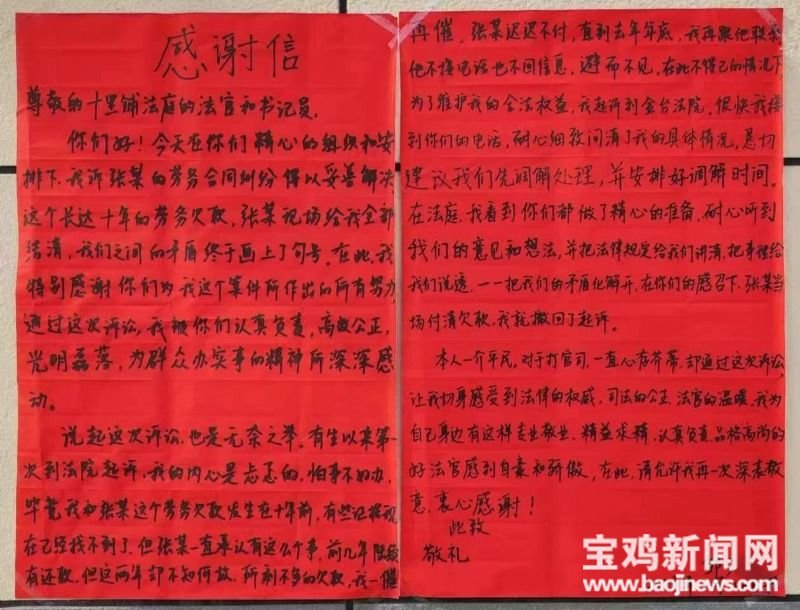 感谢信
尊敬的十里铺法庭的法官和书记员.
你们好！今天在你们精心的组织和安
排下.我诉张某的劳务合同纠纷得以妥善解决
这个长达十年的劳务欠款,张某现场给我全部
结清,我们之间的矛盾终于画上了句号.在此,我
特别感谢你们为我这个案件所作出的所有努力
通过这次诉讼,我被你们认真负责,高效公正,
光明磊落,为群众办实事的精神所深深感
动。
说起这次诉讼,也是无奈之举.有生以来第一
次到法院起诉,我的内心是忐忑的,怕事不好办.
毕竟我和张某这个劳务欠款发生在十年前,有些证据现
在已经找不到了.但张某一直承认有这么个事,前几年陆续
有还款.但这两年却不知何故.所剩不多的欠款,我一催
再催,张某迟迟不付,直到去年年底,我再跟他联系
他不接电话也不回信息,避而不见,在此不得已的情况下
为了维护我的合法权益,我起诉到金台法院,很快我接
到你们的电话,耐心细致问清了我的具体情况,恳切
建议我们先调解处理,并安排好调解时间。
在法庭,我看到你们都做了精心的准备,耐心听到
我们的意见和想法,并把法律规定给我们讲清,把事理给
我们说透.一一把我们的矛盾化解开,在你们的感召下,张某当
场付清欠款,我就撤回了起诉。
本人一介平民,对于打官司,一直心存芥蒂.却通过这次诉讼,
让我切身感受到法律的权威,司法的公正,法官的温暖,我为
自己身边有这样专业敬业、精益求精、认真负责,品格高尚的
好法官感到自豪和骄傲,在此,请允许我再一次深表敬
意,衷心感谢！
此致
敬礼
宝鸡新闻网
www.baojinews.com